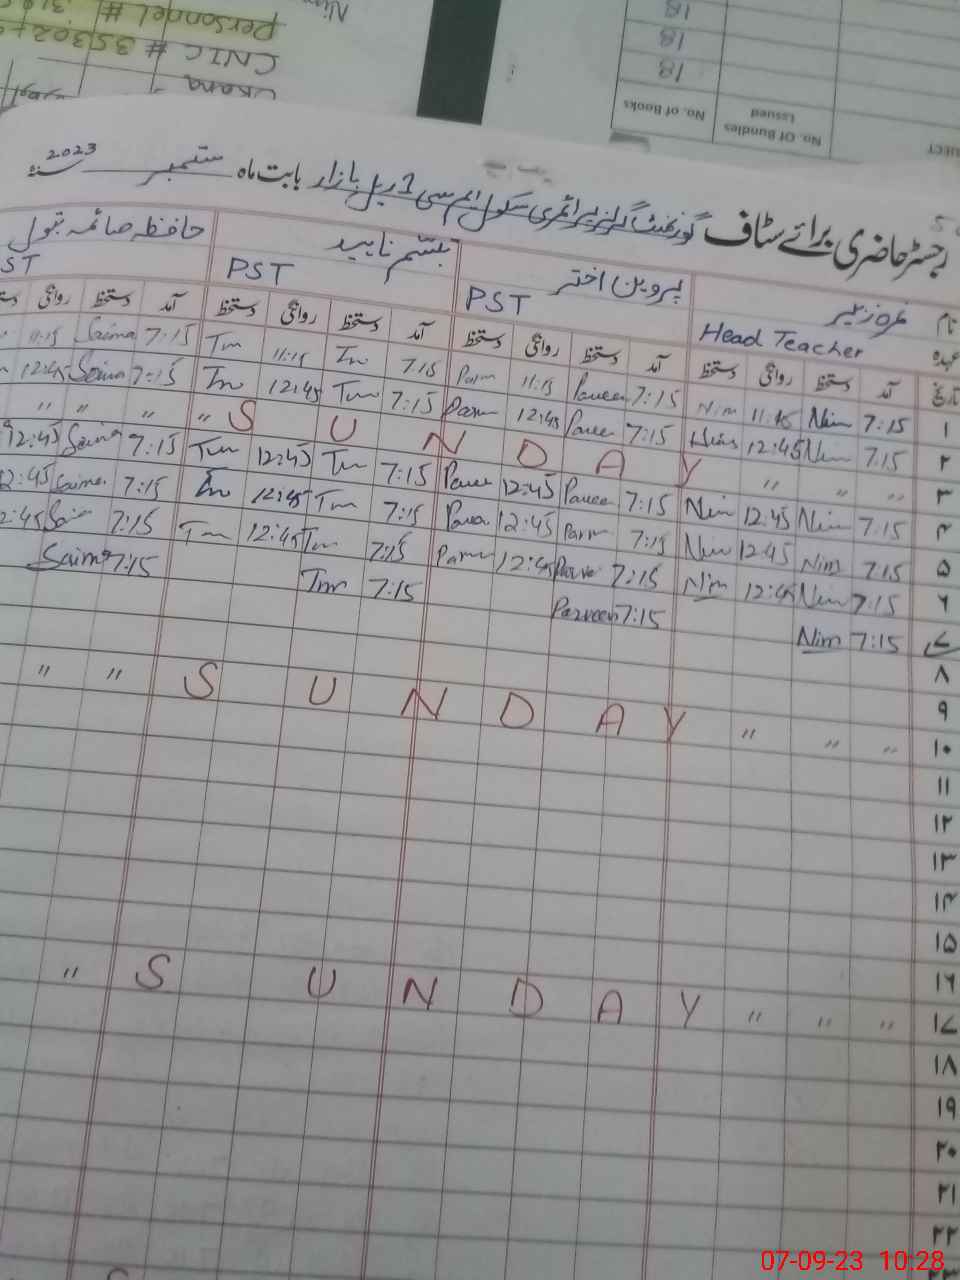 personnel #
CNIC #
18
18
18
No. of Books
No. Of Bundles Issued
رجسٹر حاضری برائے سٹاف گورنمنٹ گرلز پرائمری سکول ایم سی 1 ریل بازار بابت ماہ ستمبر سنہ 2023
نام پروین اختر تبسم ناہید حافظہ صائمہ بتول
عہدہ Head Teacher PST PST PST
تاریخ آمد دستخط روانگی دستخط آمد دستخط روانگی دستخط آمد دستخط روانگی دستخط آمد دستخط روانگی
۱ 7:15 Nim 11:15 Nim 7:15 Parveen 11:15 Parv 7:15 Tm 11:15 Tm 7:15 Saima 11:15
۲ 7:15 Nim 12:45 Nim 7:15 Parvee 12:45 Parv 7:15 Tm 12:45 Tm 7:15 Saima 12:45
۳ " " " Y A D N U S " " " "
۴ 7:15 Nim 12:45 Nim 7:15 Parvee 12:45 Parvee 7:15 Tm 12:45 Tm 7:15 Saima 12:45
۵ 7:15 Nim 12:45 Nim 7:15 Parv 12:45 Parv 7:15 Tm 12:45 Tm 7:15 Saima 12:45
۶ 7:15 Nim 12:45 Nim 7:15 Parv 12:45 Parv 7:15 Tm 12:45 Tm 7:15 Saim 2:45
۷ 7:15 Nim 7:15 Parveen 7:15 Tm 7:15 Saima
۸
۹
۱۰ " " " S U N D A Y " "
۱۱
۱۲
۱۳
۱۴
۱۵
۱۶
۱۷ " " " S U N D A Y "
۱۸
۱۹
۲۰
۲۱
۲۲
۲۳
07-09-23 10:28